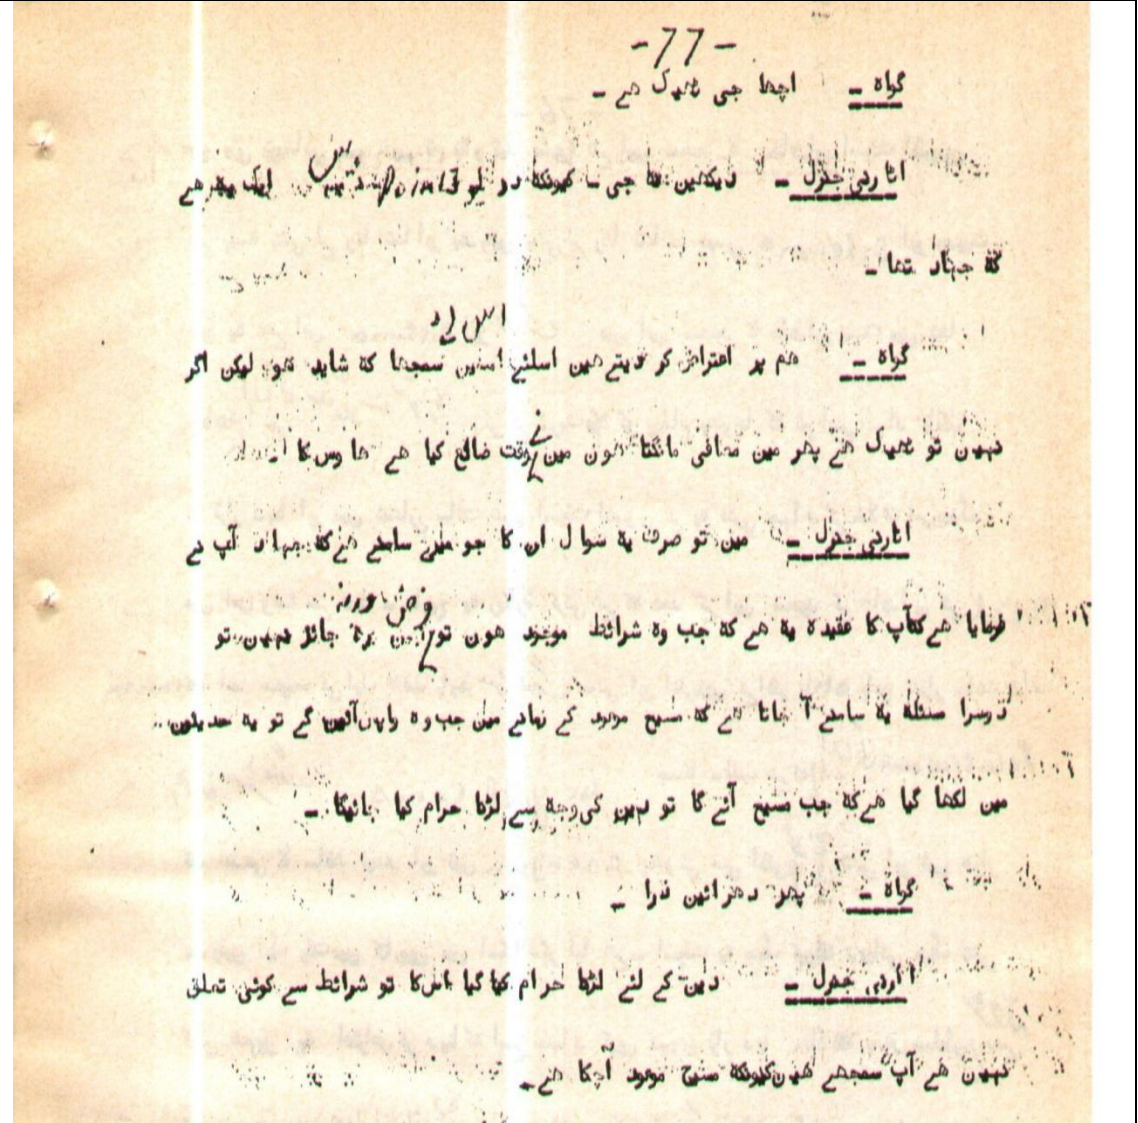 -77-
گواہ - اچھا جی ٹھیک ھے -
اٹارنی جنرل - دیکھیں نا جی - کیونکہ دو Points ھیں ایک یہ ھے
کہ جہاد تھا -
اس لئے
گواہ - ھم پر اعتراض کر دیتے ھین اسلئے مین سمجھا کہ شاید ھو لیکن اگر
نہین تو ٹھیک ھے پھر مین معافی مانگتا ھون مین نے وقت ضائع کیا ھے ھاوس کا
اٹارنی جنرل - مین تو صرف یہ سوال ان کا جو میرے سامنے ھے کہ جہاد آپ نے
فرض ورنہ
فرمایا ھے کہ آپ کا عقیدہ یہ ھے کہ جب وہ شرائط موجود ھون تو جائز نہین تو
دوسرا مسئلہ یہ سامنے آ جاتا ھے کہ مسیح موعود کے زمانے مین جب وہ واپس آئین گے تو یہ حدیثین
مین لکھا گیا ھے کہ جب مسیح آئے گا تو دین کی وجہ سے لڑنا حرام کیا جائیگا -
گواہ - پھر دھرائین ذرا -
اٹارنی جنرل - دین کے لئے لڑنا حرام کیا گیا اس کا تو شرائط سے کوئی تعلق
نہین ھے آپ سمجھے ھین کیونکہ مسیح موعود آچکا ھے -